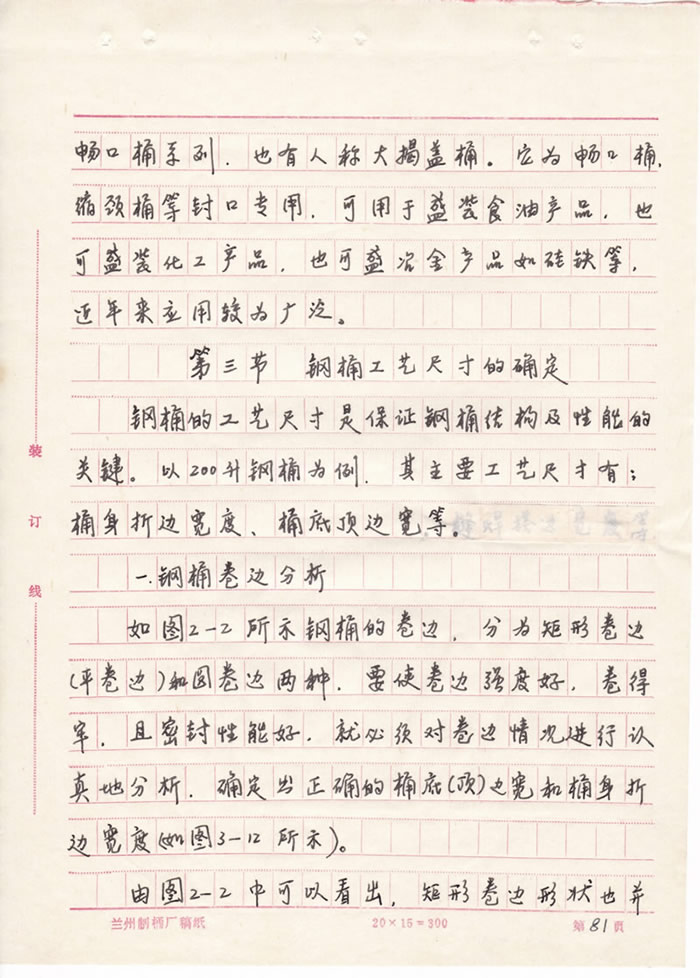 畅口桶系列，也有人称大揭盖桶。它为畅口桶，
缩颈桶等封口专用，可用于盛装食油产品，也
可盛装化工产品，也可盛冶金产品如硅铁等，
近年来应用较为广泛。
第三节 钢桶工艺尺寸的确定
钢桶的工艺尺寸是保证钢桶结构及性能的
关键。以200升钢桶为例，其主要工艺尺寸有：
桶身折边宽度、桶底顶边宽等。
一.钢桶卷边分析
如图2-2所示钢桶的卷边，分为矩形卷边
(平卷边)和圆卷边两种，要使卷边强度好，卷得
牢，且密封性能好，就必须对卷边情况进行认
真地分析，确定出正确的桶底(顶)边宽和桶身折
边宽度(如图3-12所示)。
由图2-2中可以看出，矩形卷边形状也并
装
订
线
兰州制桶厂稿纸 20×15=300 第81页